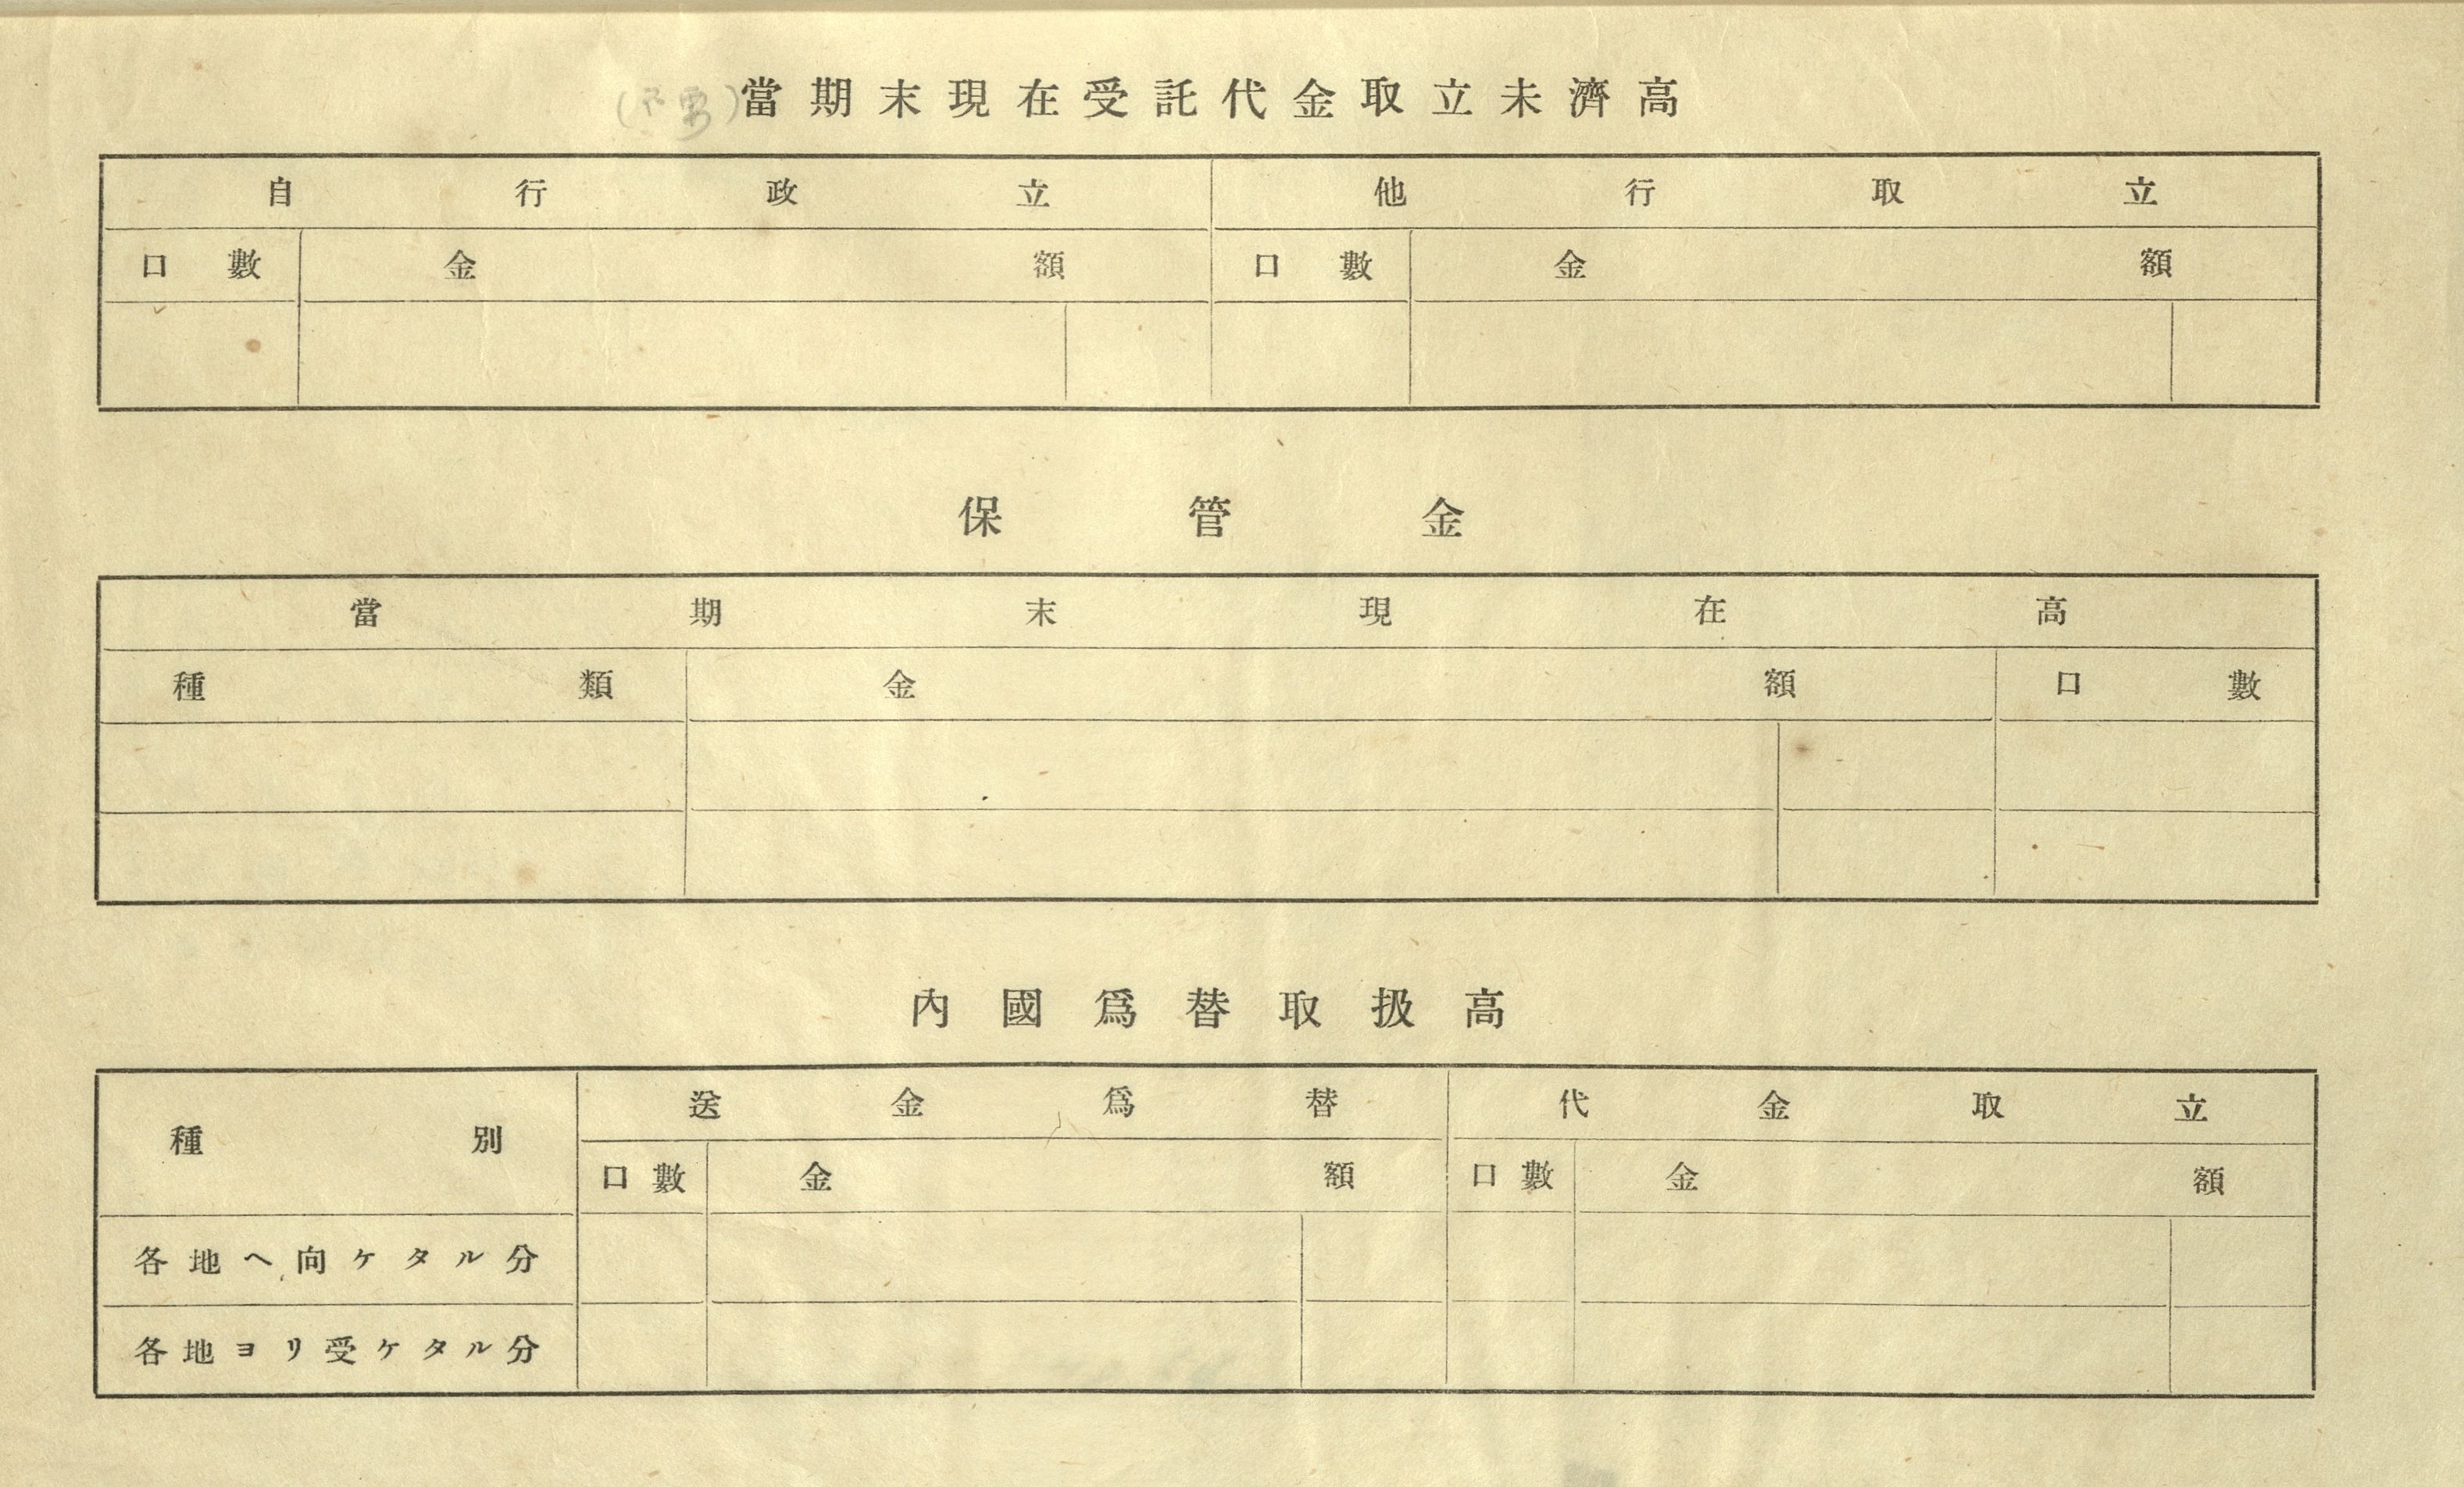 (不要)當期末現在受託代金取立未濟高
自行政立 他行取立
口數 金額 口數 金額
保管金
當期末現在高
種類 金額 口數
內國爲替取扱高
種別 送金爲替 代金取立
口數 金額 口數 金額
各地ヘ向ケタル分
各地ヨリ受ケタル分